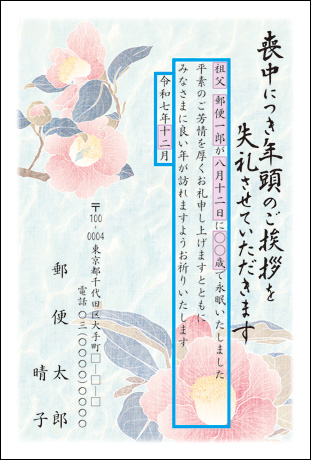 喪中につき年頭のご挨拶を
失礼させていただきます
祖父 郵便一郎が八月十二日に〇〇歳で永眠いたしました
平素のご芳情を厚くお礼申し上げますとともに
みなさまに良い年が訪れますようお祈りいたします
令和七年十二月
〒100-0004 東京都千代田区大手町□―□―□
電話 〇三(〇〇〇〇)〇〇〇〇
郵便 太郎
晴子